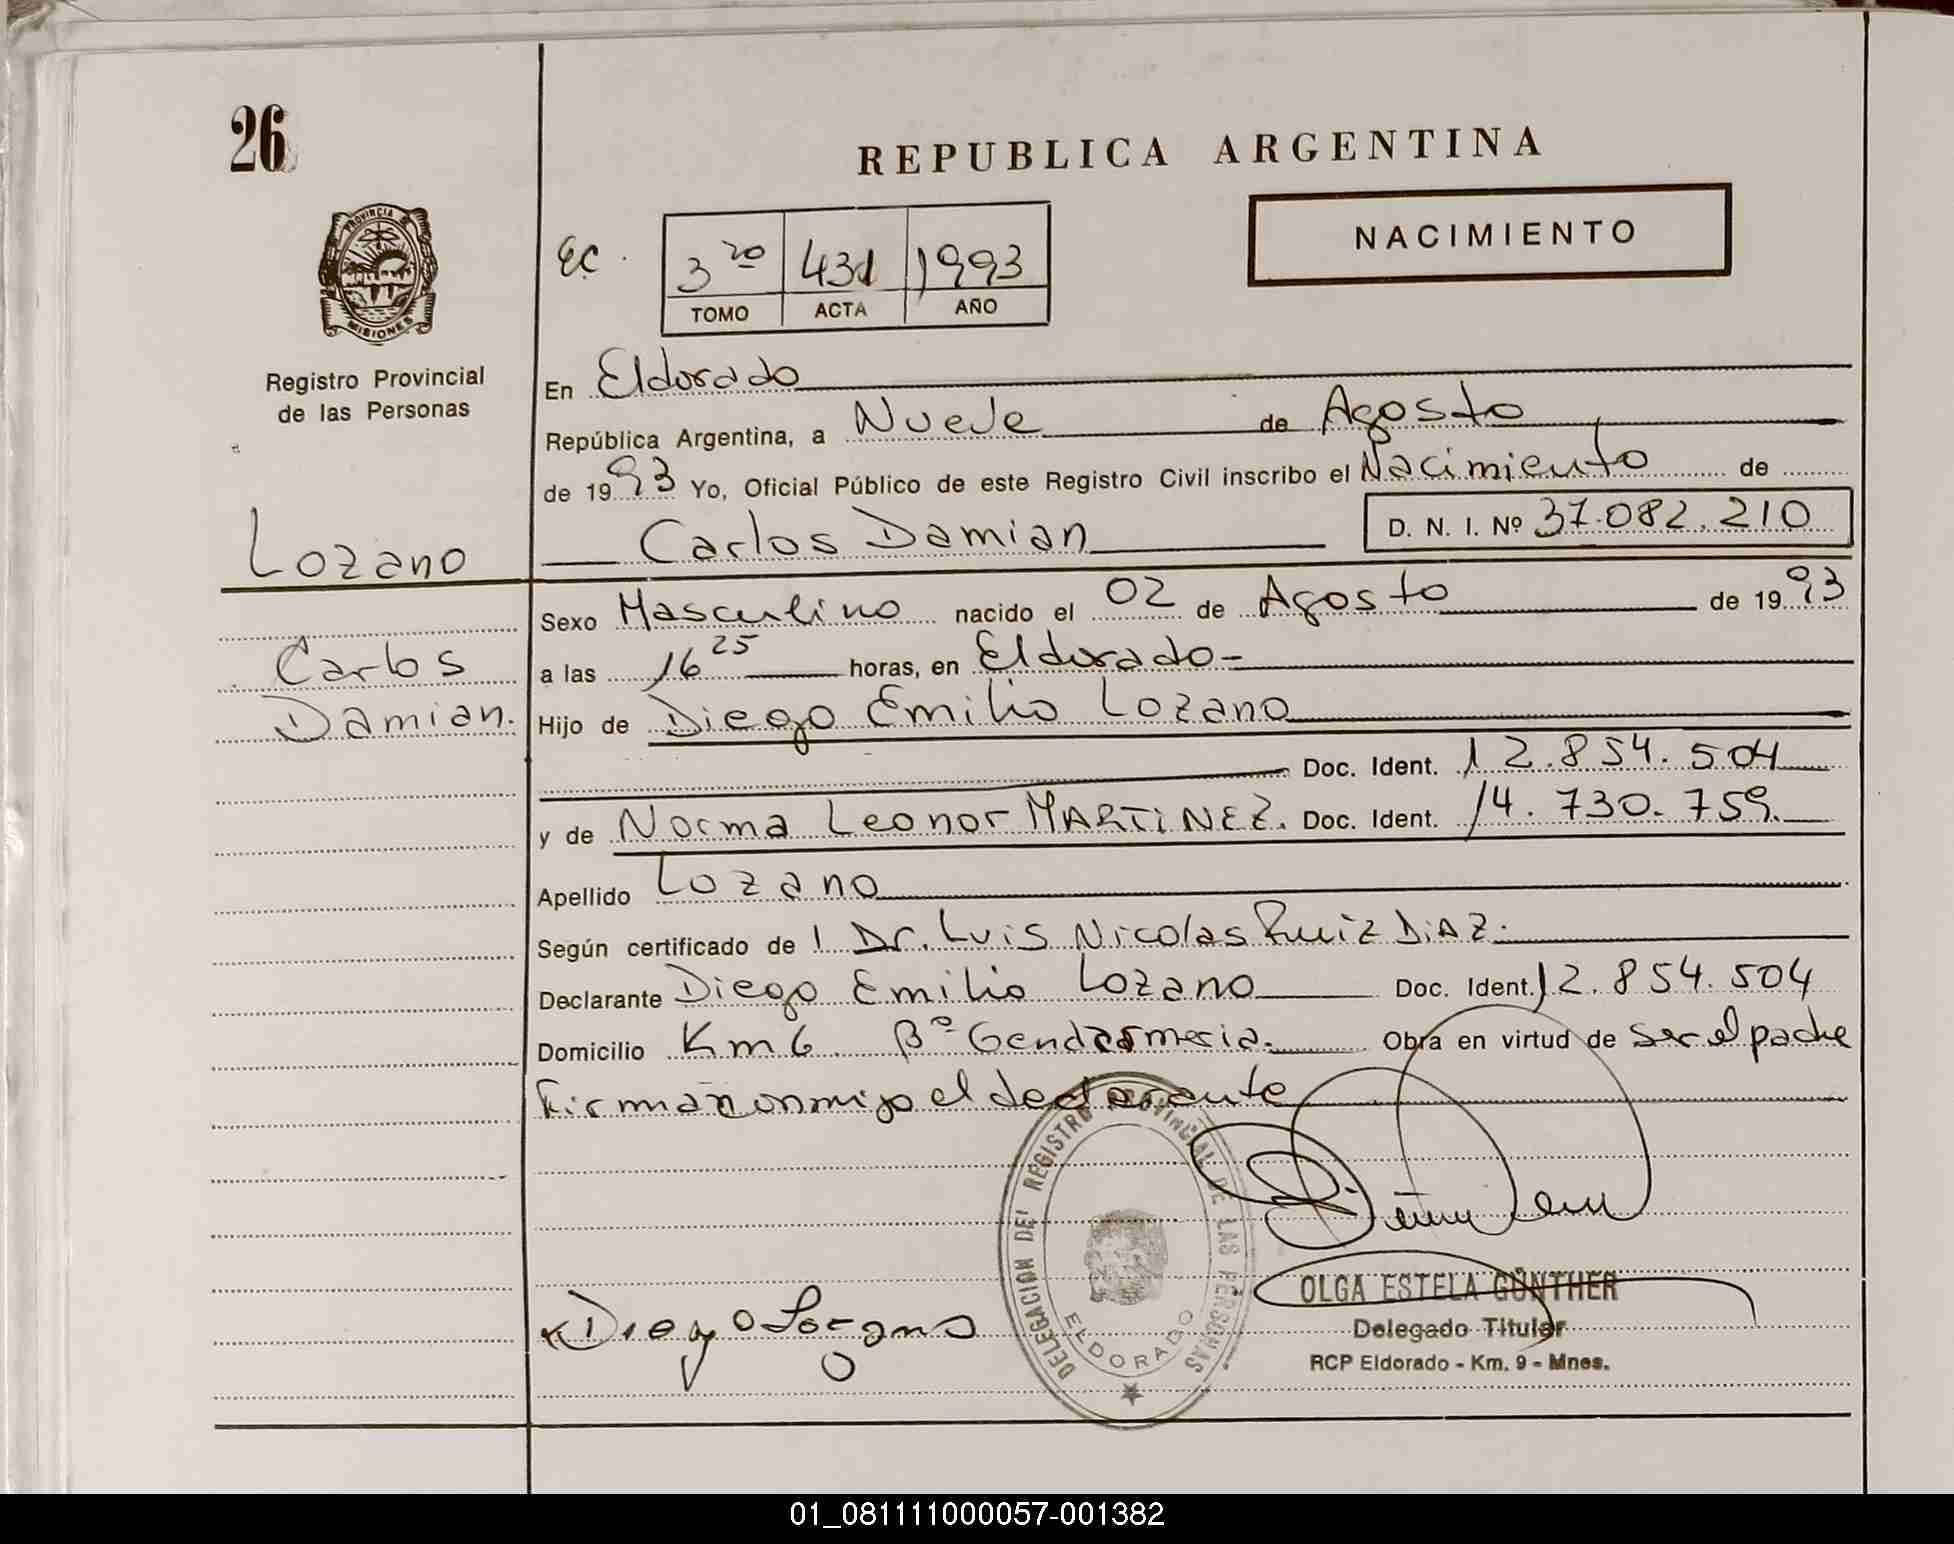 26
REPUBLICA ARGENTINA
PROVINCIA DE
MISIONES
Registro Provincial
de las Personas
EC.
3 ro 431 1993
TOMO ACTA AÑO
NACIMIENTO
En Eldorado
República Argentina, a Nueve de Agosto
de 1993 Yo, Oficial Público de este Registro Civil inscribo el Nacimiento de
Carlos Damian D. N. I. Nº 37.082.210
Lozano
Carlos
Damian.
Sexo Masculino nacido el 02 de Agosto de 1993
a las 16 25 horas, en Eldorado-
Hijo de Diego Emilio Lozano
Doc. Ident. 12.854.504
y de Norma Leonor MARTINEZ. Doc. Ident. 14.730.759.
Apellido Lozano
Según certificado de l Dr. Luis Nicolas Ruiz DiAZ.
Declarante Diego Emilio Lozano Doc. Ident. 12.854.504
Domicilio Km 6 Bº Gendarmeria. Obra en virtud de ser el padre
Firman conmigo el declarante
DELEGACION DEL REGISTRO PROVINCIAL DE LAS PERSONAS
ELDORADO
Diego Lozano
OLGA ESTELA GÜNTHER
Delegado Titular
RCP Eldorado - Km. 9 - Mnes.
01_081111000057-001382